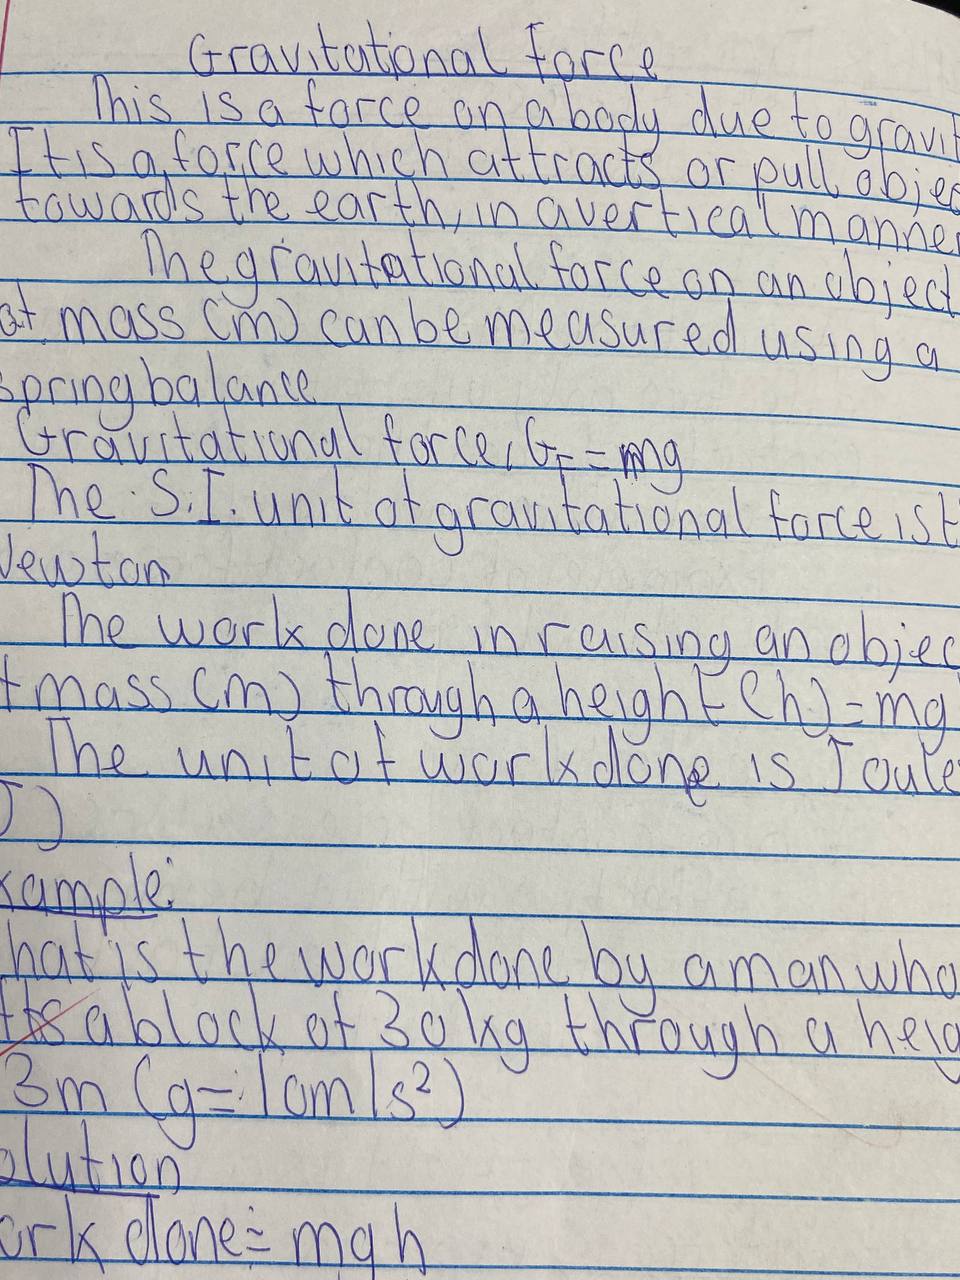 Gravitational Force
This is a force on a body due to gravit
It is a force which attracts or pull objec
towards the earth, in a vertical manner
The gravitational force on an object
of mass (m) can be measured using a
spring balance
Gravitational force, GF = mg
The S.I. unit of gravitational force is t
Newton
The work done in raising an objec
f mass (m) through a height (h) = mg
The unit of work done is Joule
J)
xample:
hat is the work done by a man who
fts a block of 30kg through a heig
3m (g = 10m/s²)
olution
ork done = mgh